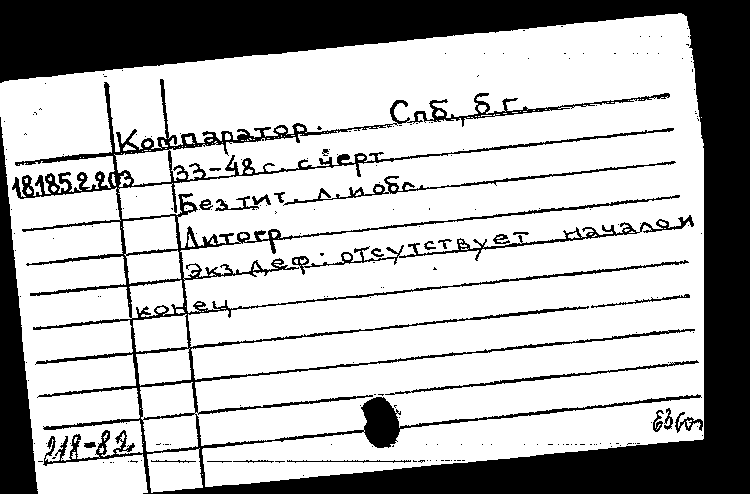 Компаратор. Спб., б.г.
18.185.2.203 33-48 с. с черт.
Без тит. л. и обл.
Литогр.
Экз. деф.: отсутствует начало и
конец.
218-82